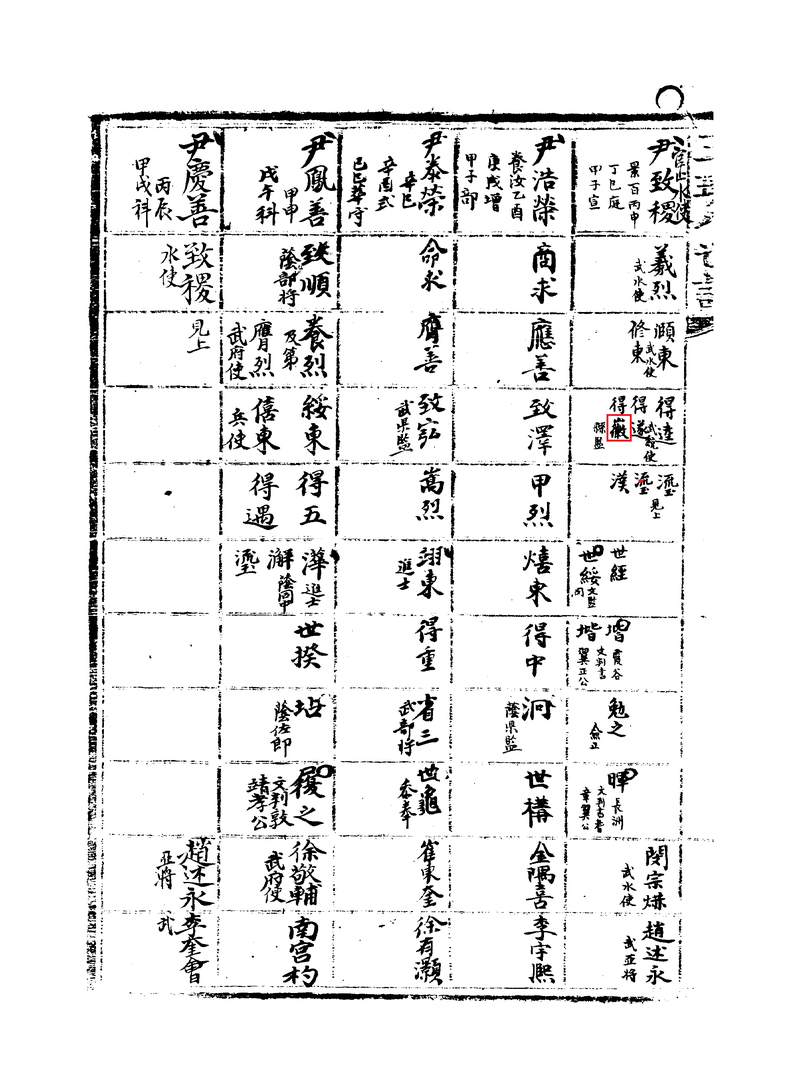 尹致稷
景百丙申
丁巳庭
甲子宣
羲烈
武水使
頤東
武水使
修東
得逵
得遂
武統使
得
縣監
見上
漢
世經
世綏
文監
增
霞谷
文判書
翼正公
堦
勉之
僉正
暉
長洲
文判書耆
章翼公
閔宗爀
武水使
趙述永
武亞將
尹浩榮
養汝乙酉
庚戌增
甲子部
商求
應善
致澤
甲烈
熺東
得中
泂
蔭県監
世構
金隅喜
李宇熙
尹泰榮
辛巳
辛酉式
己巳華守
命求
膺善
致宖
武県監
嵩烈
翊東
進士
得重
省三
武部將
世龜
叅奉
崔東奎
徐有灝
尹鳳善
甲申
戊午科
致順
蔭部將
養烈
及第
膺烈
武府使
綏東
僖東
兵使
得五
得遇
進士
瀣
蔭同中
世揆
坫
蔭佐郎
履之
文判敦
靖孝公
徐敬輔
武府使
南宮杓
尹慶善
丙辰
甲戌科
致稷
水使
見上
趙述永
亞將
李奎會
武